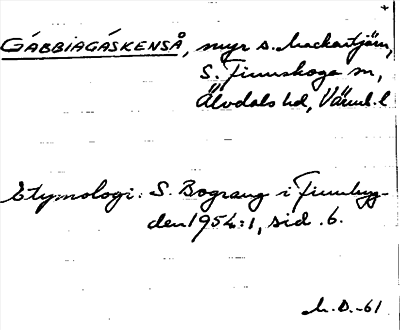 GÁBBIAGÁSKENSÅ, myr s. Mackartjärn,
S. Finnskoga sn,
Älvdals hd, Värml. l
Etymologi: S. Bograng i Finnbyg-
den 1954:1, sid. 6.
-61